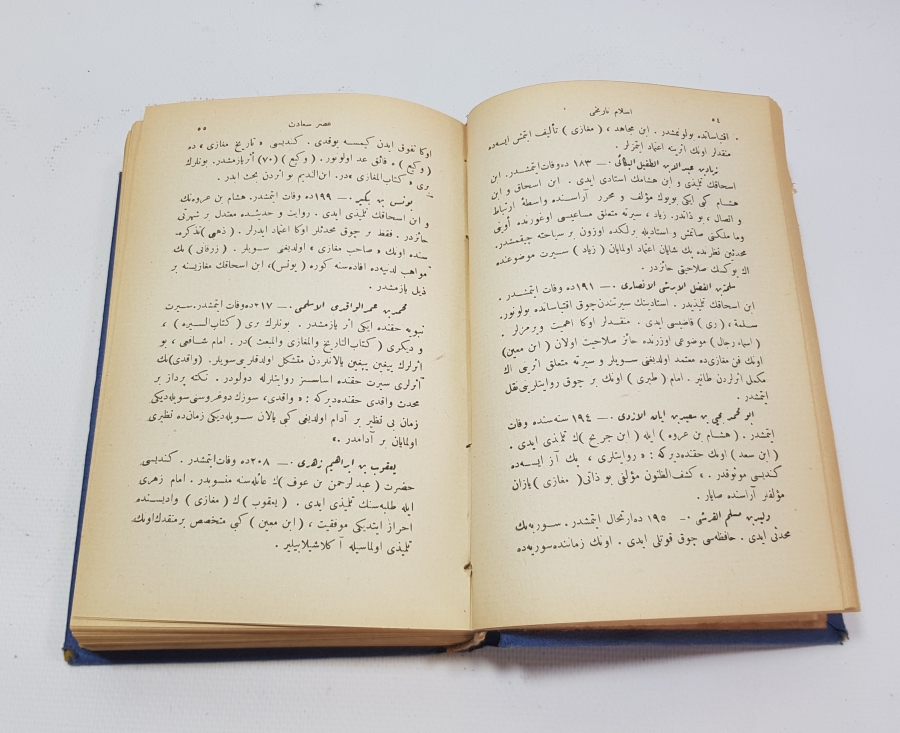 ٥٤
اسلام تاريخى
اقتباساتده بولونمشدر . ابن مجاهد ، ( مغازى ) تأليف ايتمش ايسه‌ده
منقدلر اونك اثرينه اعتماد ايتمزلر .
زياد بن عبدالله بن الطفيل البكائى ٠ــ ١٨٣ ده وفات ايتمشدر . ابن
اسحاقك تلميذى و ابن هشامك استادى ايدى . ابن اسحاق و ابن
هشام كبى ايكى بويوك مؤلف و محرر آراسنده واسطۀ ارتباط
و اتصال ، بو ذاتدر . زياد ، سيرته متعلق مساعيسى اوغورنده أوينى
وما ملكنى صاتمش و استاديله برلكده اوزون بر سياحته چيقمشدر .
محدثين نظرنده پك شايان اعتماد اولمايان ( زياد ) سيرت موضوعنده
اك بويوك صلاحيتى حائزدر .
سلمة بن الفضل الابرشى الانصارى ٠ــ ١٩١ ده وفات ايتمشدر .
ابن اسحاقك تلميذيدر . استادينك سيرتندن چوق اقتباساتده بولونور.
سلمة ، ( رى ) قاضيسى ايدى . منقدلر اوكا اهميت ويرمزلر .
( اسماء رجال ) موضوعى اوزرنده حائز صلاحيت اولان ( ابن معين )
اونك فن مغازى‌ده معتمد اولديغنى سويلر و سيرته متعلق اثرينى اك
مكمل اثرلردن طانير . امام ( طبرى ) اونك بر چوق روايتلرينى نقل
ايتمشدر .
ابو محمد يحيى بن سعيد بن ابان الازدى ٠ــ ١٩٤ سنه‌سنده وفات
ايتمشدر . ( هشام بن عروه ) ايله ( ابن جريج ) ك تلميذى ايدى .
( ابن سعد ) اونك حقنده ديركه : « روايتلرى ، پك آز ايسه‌ده
كنديسى موثوقدر . » كشف الظنون مؤلفى بو ذاتى ( مغازى ) يازان
مؤلفلر آراسنده صايار .
وليد بن مسلم القرشى ٠ــ ١٩٥ ده ارتحال ايتمشدر . سوريه‌نك
محدثى ايدى . حافظه‌سى چوق قوتلى ايدى . اونك زماننده سوريه‌ده
عصر سعادت
٥٥
اوكا تفوق ايدن كيمسه يوقدى . كنديسى « تاريخ مغازى » ده
( وكيع ) ه فائق عد اولونور . ( وكيع ) (٧٠) اثر يازمشدر . بونلرك
برى « كتاب المغازى » در . ابن النديم بو اثردن بحث ايدر .
يونس بن بكير ٠ــ ١٩٩ده وفات ايتمشدر. هشام بن عروه‌نك
و ابن اسحاقك تلميذى ايدى . روايت و حديثده معتدل بر شهرتى
حائزدر . فقط بر چوق محدثلر اوكا اعتماد ايدرلر . ( ذهبى ) تذكره
سنده اونك « صاحب مغازى » اولديغنى سويلر . ( زرقانى ) نك
مواهب لدنيه‌ده افاده‌سنه كوره ( يونس )، ابن اسحاقك مغازيسنه بر
ذيل يازمشدر .
محمد بن عمر الواقدى الاسلمى ٠ــ ٢١٧ده وفات ايتمشدر. سيرت
نبويه حقنده ايكى اثر يازمشدر . بونلرك برى ( كتاب السيره ) ،
و ديكرى ( كتاب التاريخ والمغازى والمبعث ) در . امام شافعى ، بو
اثرلرك ييغين ييغين يالانلردن متشكل اولدقلرينى سويلر. (واقدى)نك
أثرلرى سيرت حقنده اساسسز روايتلرله دولودر . نكته پرداز بر
محدث واقدى حقنده ديركه : « واقدى ، سوزك دوغروسنى سويله‌ديكى
زمان بى نظير بر آدام اولديغى كبى يالان سويله‌ديكى زمان‌ده نظيرى
اولمايان بر آدامدر . »
يعقوب بن ابراهيم زهرى ٠ــ ٢٠٨ ده وفات ايتمشدر . كنديسى
حضرت ( عبد الرحمن بن عوف ) ك عائله‌سنه منسوبدر . امام زهرى
ايله طلبه‌سنك تلميذى ايدى . ( يعقوب ) ك ( مغازى ) واديسنده
احراز ايتديكى موفقيت ، ( ابن معين ) كبى متخصص بر منقدك اونك
تلميذى اولماسيله آ كلاشيلابيلير .